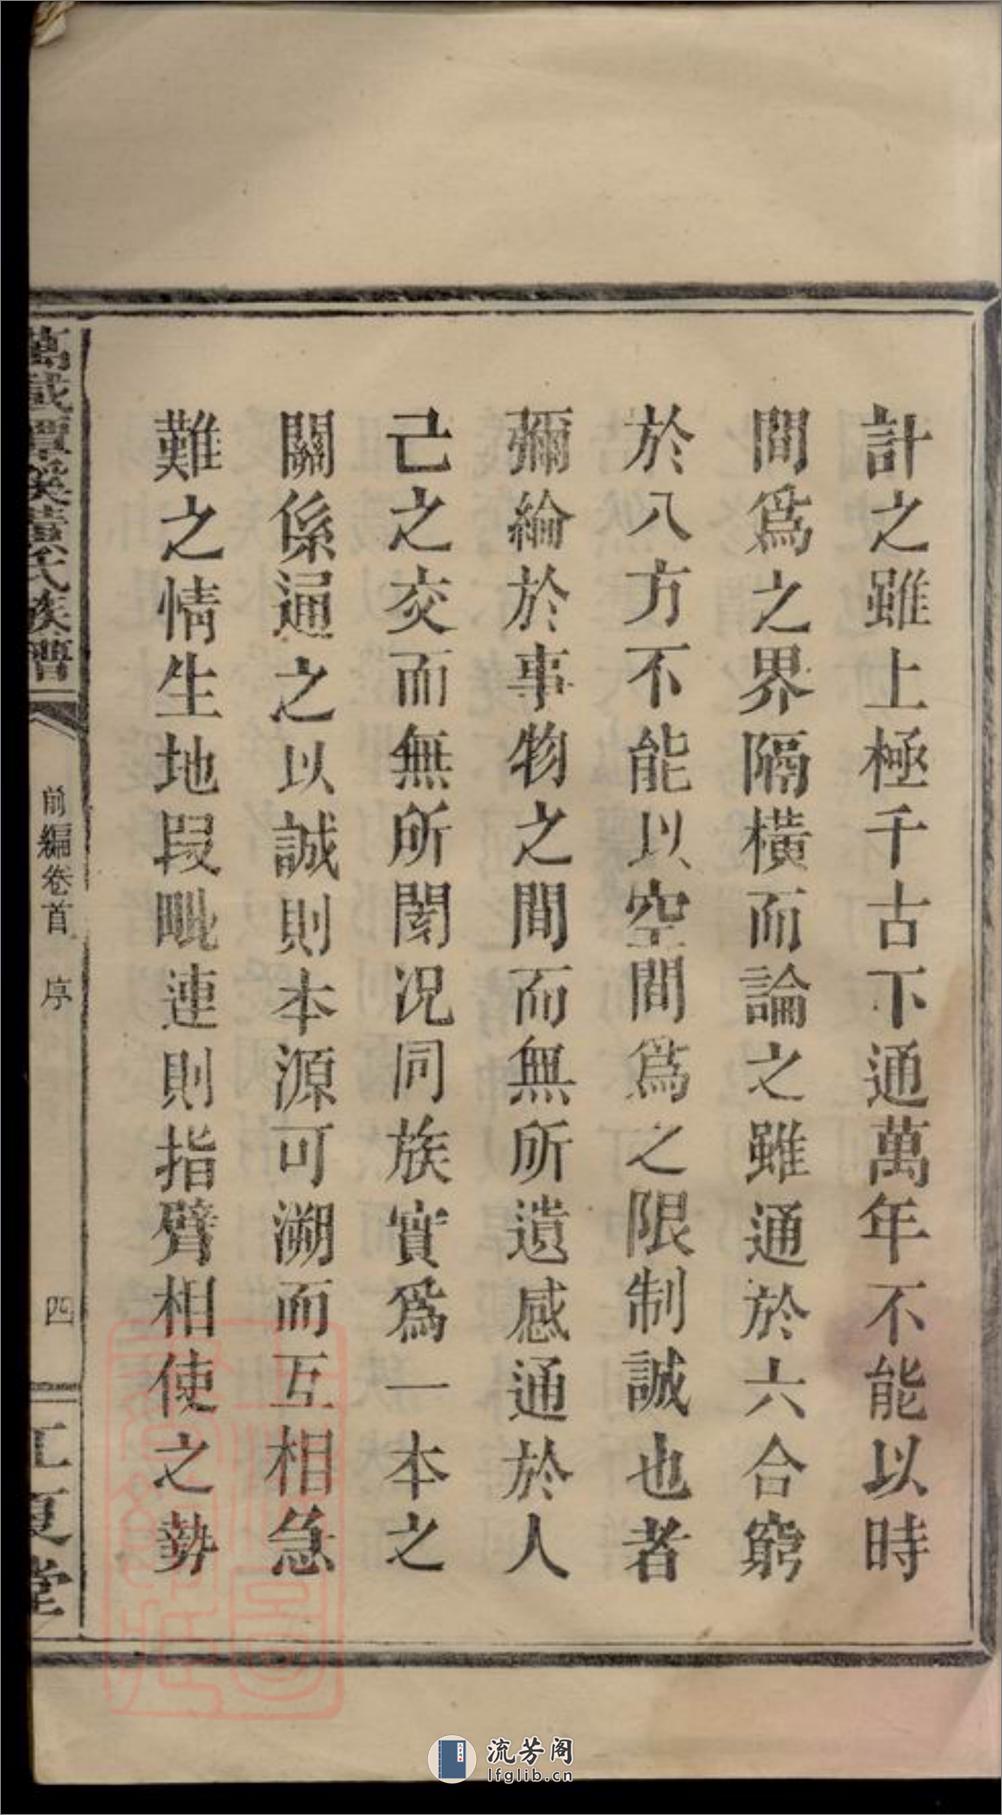 計之雖上極千古下通萬年不能以時
間爲之界隔橫而論之雖通於六合窮
於八方不能以空間爲之限制誠也者
彌綸於事物之間而無所遺感通於人
己之交而無所閡况同族實爲一本之
關係通之以誠則本源可溯而互相急
難之情生地段毗連則指臂相使之勢
萬載 氏族譜
前編卷首 序
四
江夏堂
流芳阁
lfglib.cn